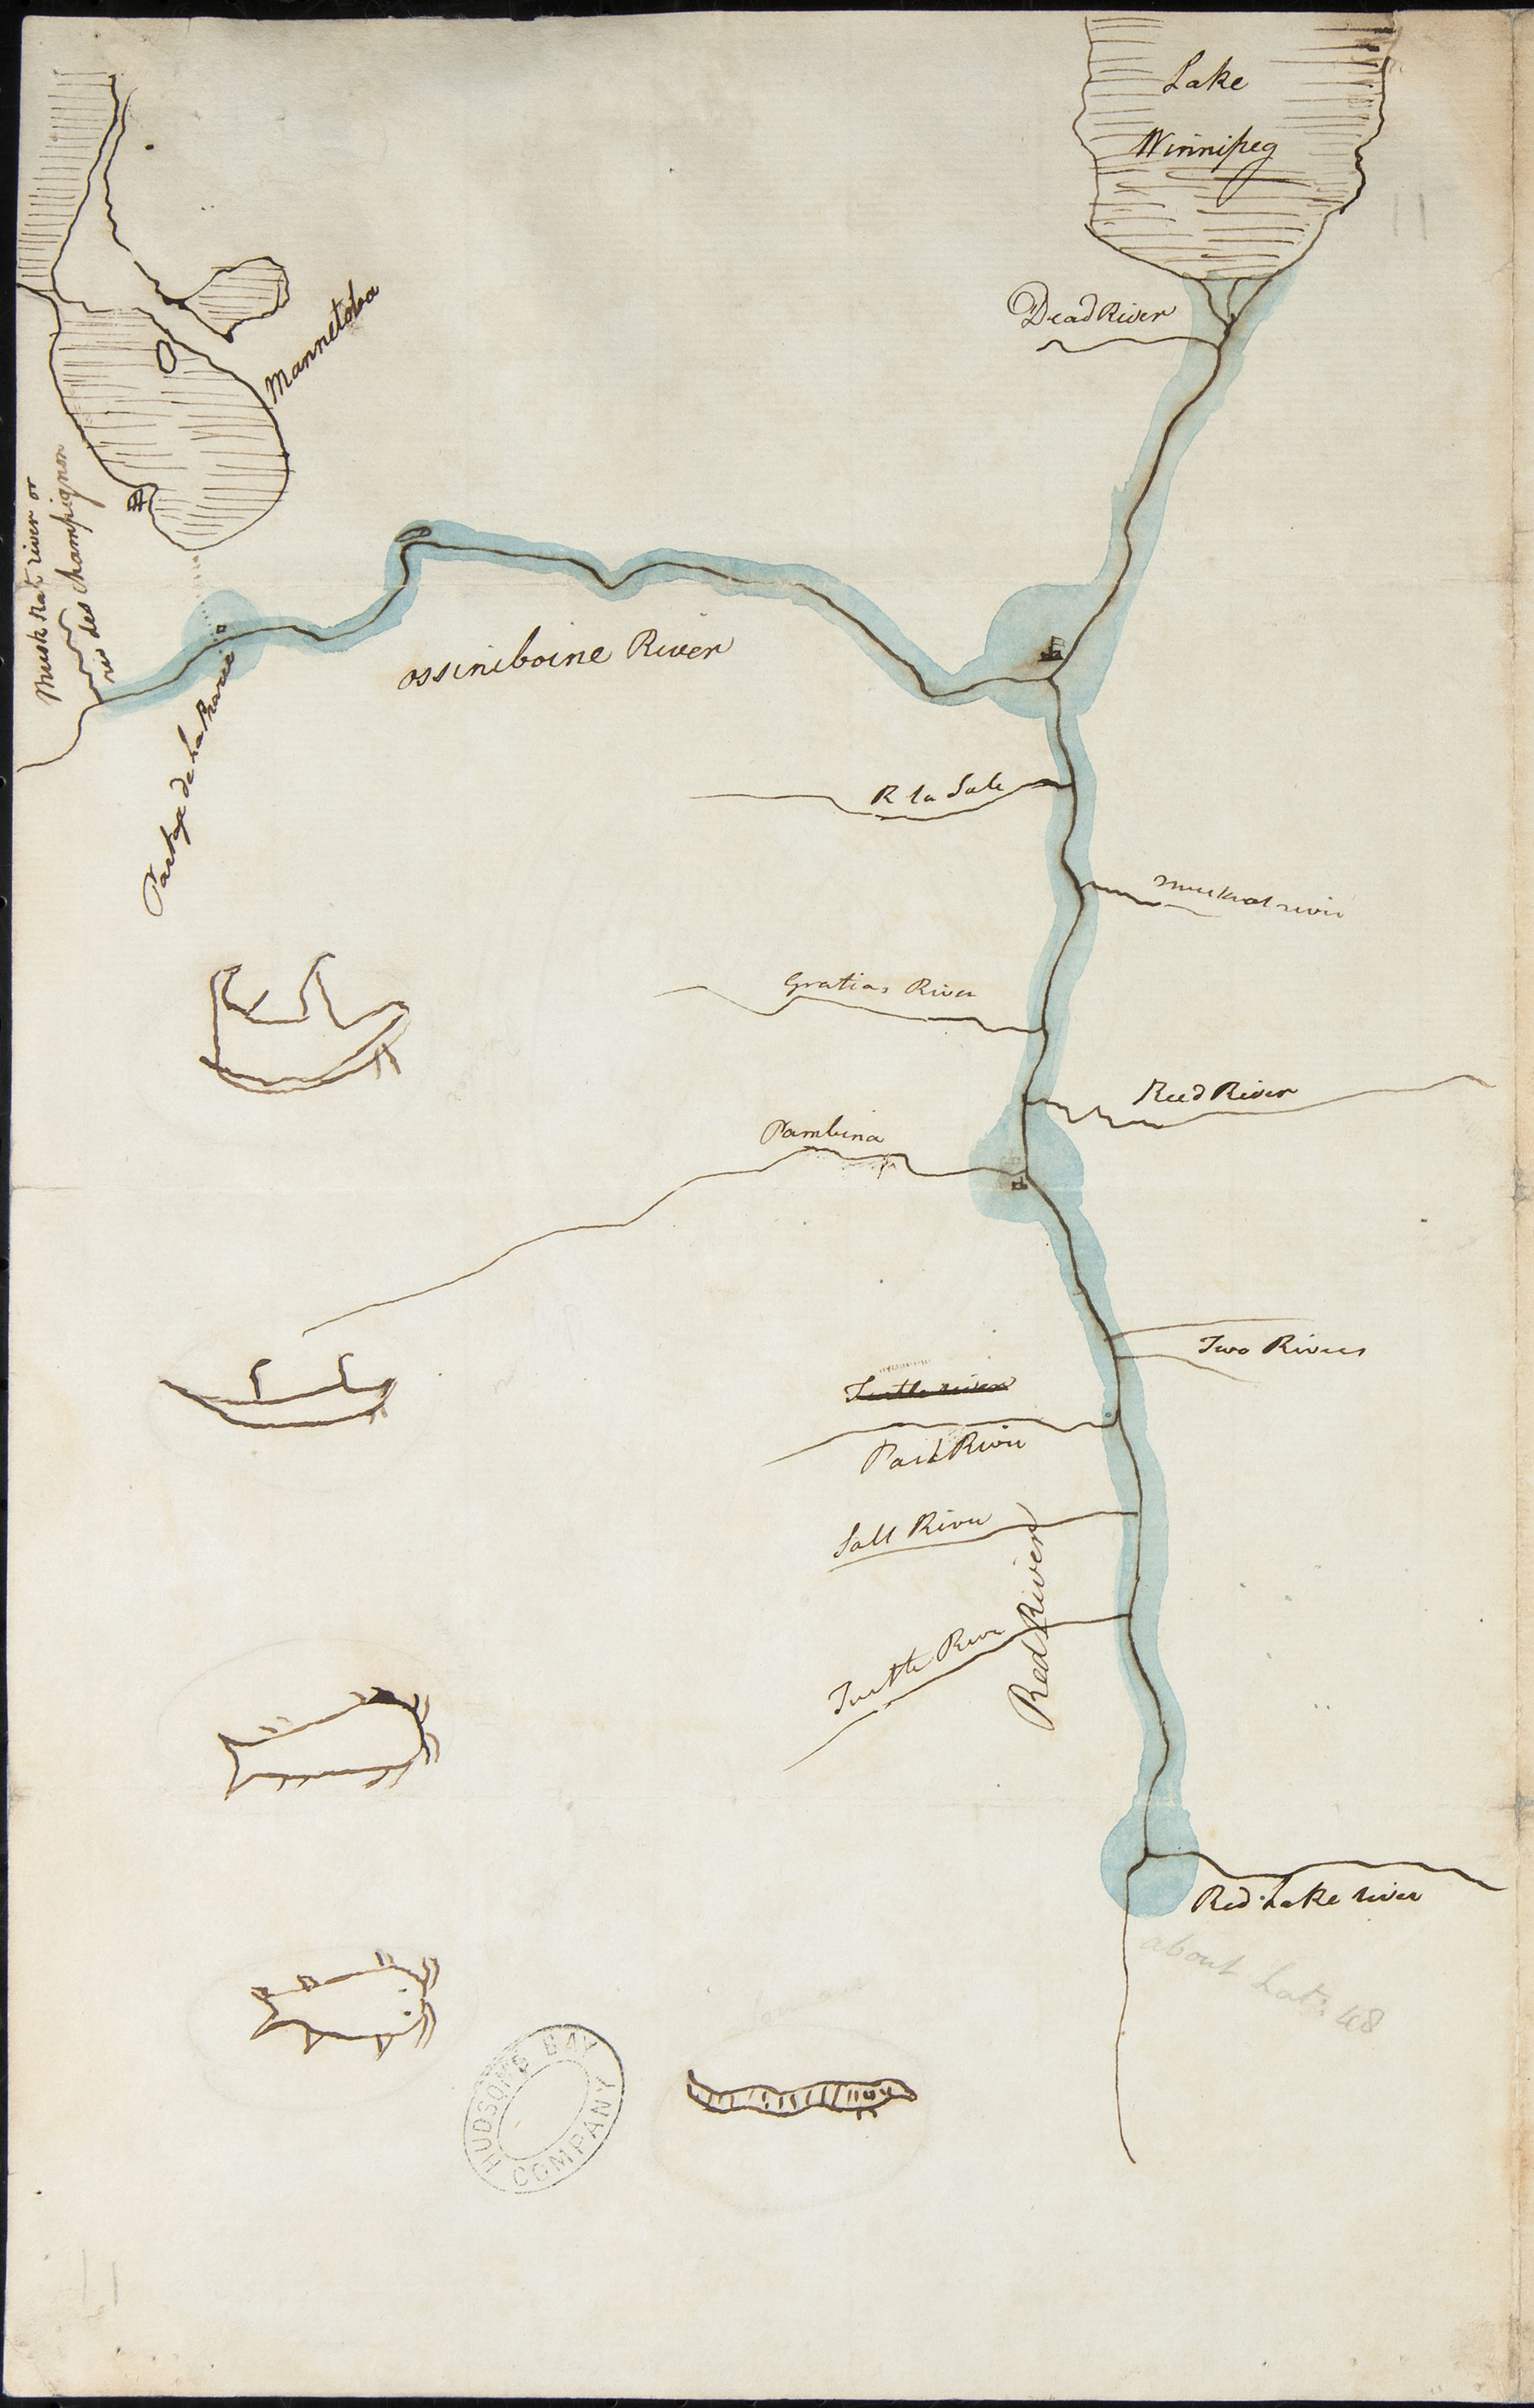 Lake
Winnipeg
11
Dead River
Mannetoba
Musk Rat river or
riv des champignon
ossiniboine River
Portage de La Prarie
R la Sale
muskrat river
Gratias River
Reed River
Pambina
Two Rivers
Turtle river
Park River
Salt River
Red River
Turtle River
Red Lake river
about Lat: 48
HUDSON'S BAY
COMPANY
11